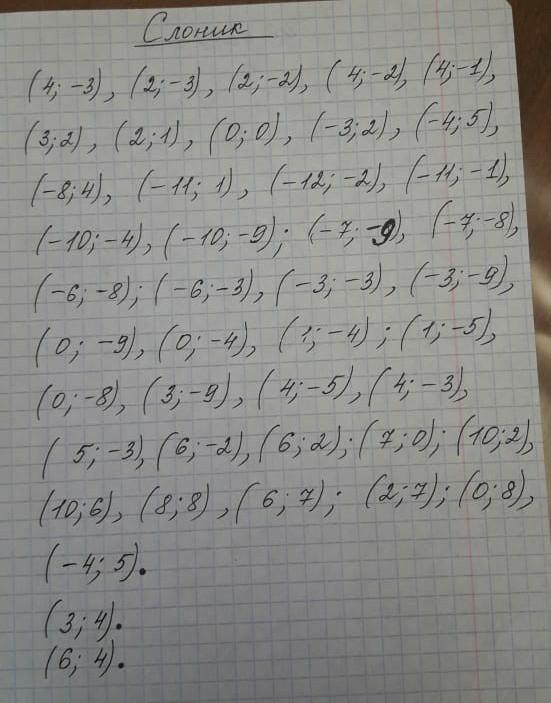 Слоник
(4; -3), (2; -3), (2; -2), (4; -2), (4; -1),
(3; 2), (2; 1), (0; 0), (-3; 2), (-4; 5),
(-8; 4), (-11; 1), (-12; -2), (-11; -1),
(-10; -4), (-10; -9); (-7; -9), (-7; -8),
(-6; -8); (-6; -3), (-3; -3), (-3; -9),
(0; -9), (0; -4), (1; -4); (1; -5),
(0; -8), (3; -9), (4; -5), (4; -3),
(5; -3), (6; -2), (6; 2); (7; 0); (10; 2),
(10; 6), (8; 8), (6; 7); (2; 7); (0; 8),
(-4; 5).
(3; 4).
(6; 4).